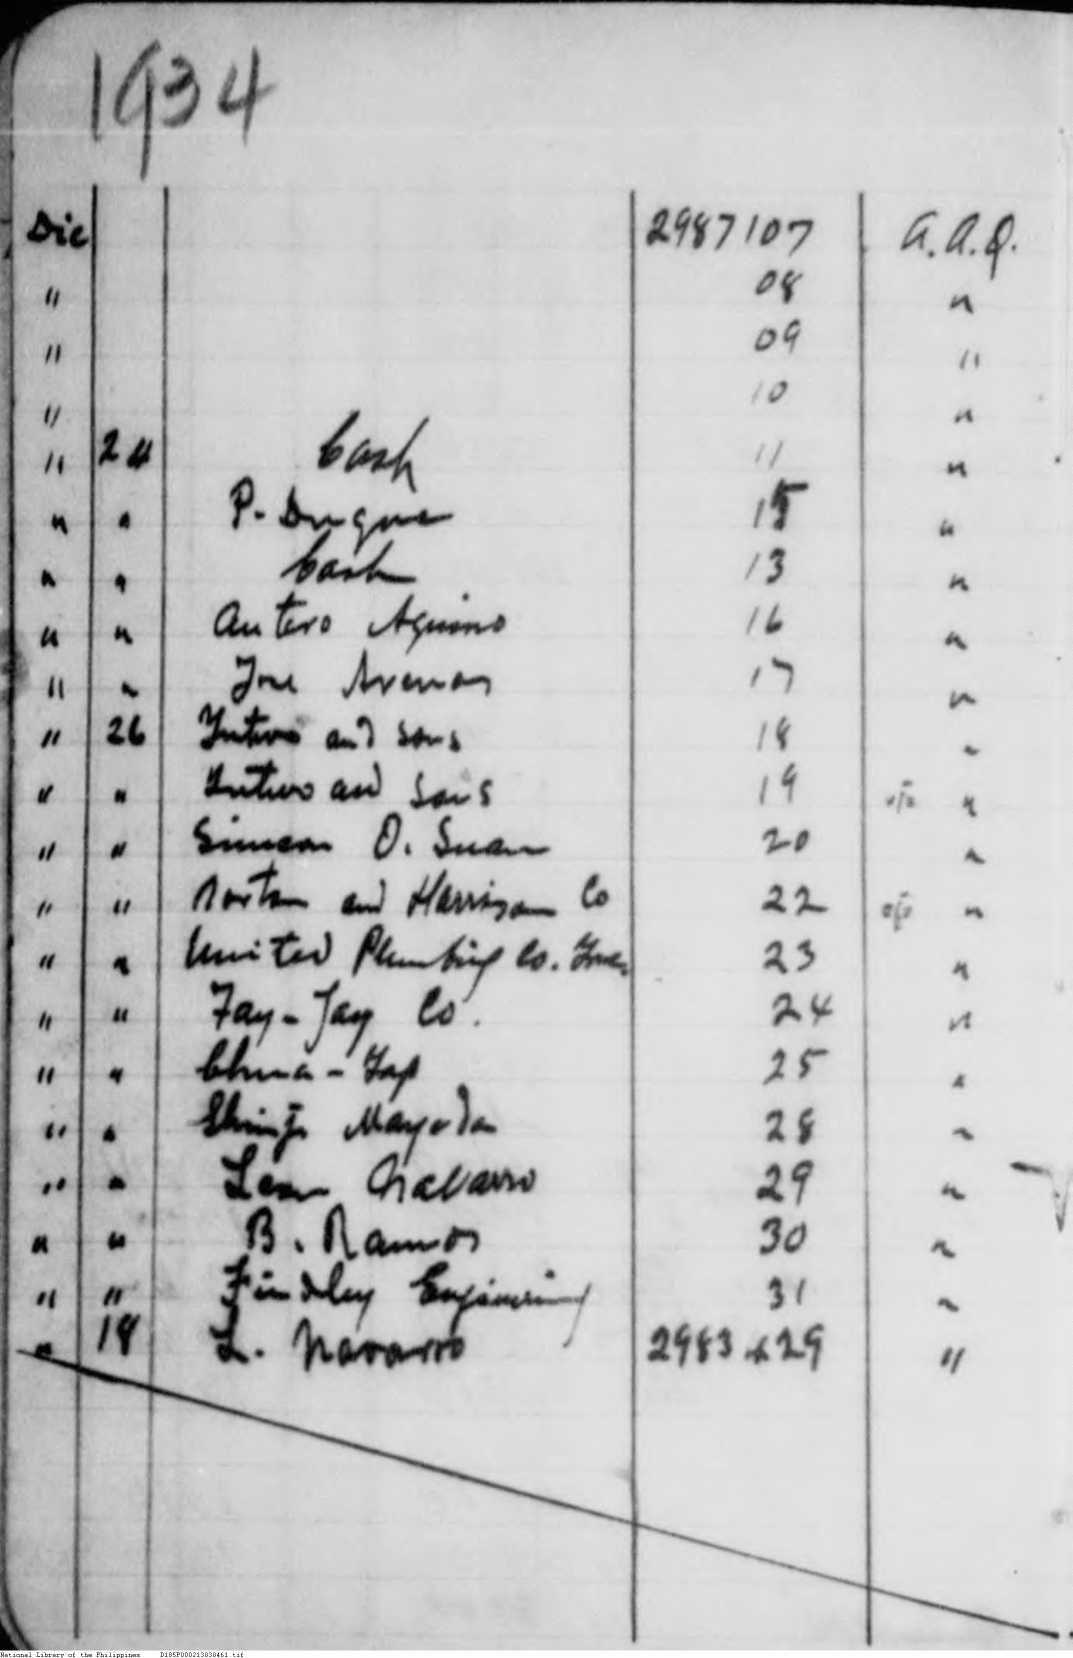 1934
Dic 2987107 A.A.Q.
" 08 "
" 09 "
" 10 "
" 24 Cash 11 "
" " P. Duque 15 "
" " Cash 13 "
" " Antero Aquino 16 "
" " Jose 17 "
" 26 Yutivo and Sons 18 "
" " Yutivo and Sons 19 "
" " Simeon O. Suan 20 "
" " Norton and Harrison Co 22 "
" " United Plumbing Co. Inc. 23 "
" " Fay-Jay Co. 24 "
" " China-Yap 25 "
" " 28 "
" " Leon Navarro 29 "
" " B. Ramos 30 "
" " Findley Engineering 31 "
" 18 L. Navarro 2983 29 "
National Library of the Philippines D185P000213838461.tif